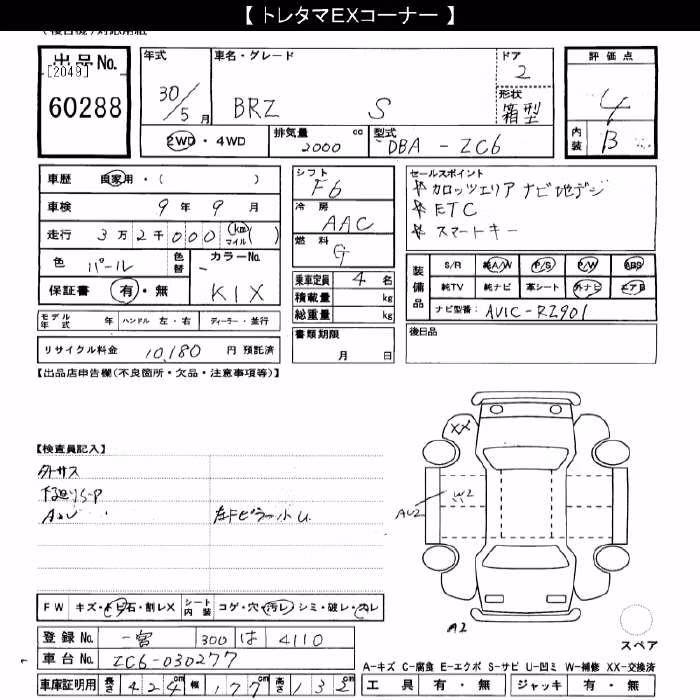 【 トレタマEXコーナー 】
出品No.
[2049]
60288
年式
30/5 月
車名・グレード
BRZ S
ドア
2
形状
箱型
2WD・4WD
排気量 2000 cc
型式 DBA - ZC6
評価点
4
内装 B
車歴 自家用・( )
車検 9年 9月
走行 3万2千000 (km マイル)
色 パール
色替
カラーNo. K1X
保証書 有・無
シフト F6
冷房 AAC
燃料 G
乗車定員 4 名
積載量 kg
総重量 kg
書類期限
月 日
セールスポイント
カロッツェリア ナビ地デジ
ETC
スマートキー
装備品
S/R 純A/W P/S P/W ABS
純TV 純ナビ 革シート 外ナビ エアB
ナビ型番: AVIC-RZ901
後日品
モデル年式 年 ハンドル 左・右 ディーラー・並行
リサイクル料金 10,180 円 預託済
【出品店申告欄(不良箇所・欠品・注意事項等)】
【検査員記入】
外キサス
下廻りS・P
XX
W2
AU2
A2
FW キズ・トビ石・割レX シート内装 コゲ・穴・汚レ・シミ・破レ・スレ
登録No. 一宮 300 は 4110
車台No. ZC6-030277
車庫証明用 長さ 424cm 幅 177cm 高さ 132cm
スペア
A-キズ C-腐食 E-エクボ S-サビ U-凹ミ W-補修 XX-交換済
工具 有・無 ジャッキ 有・無